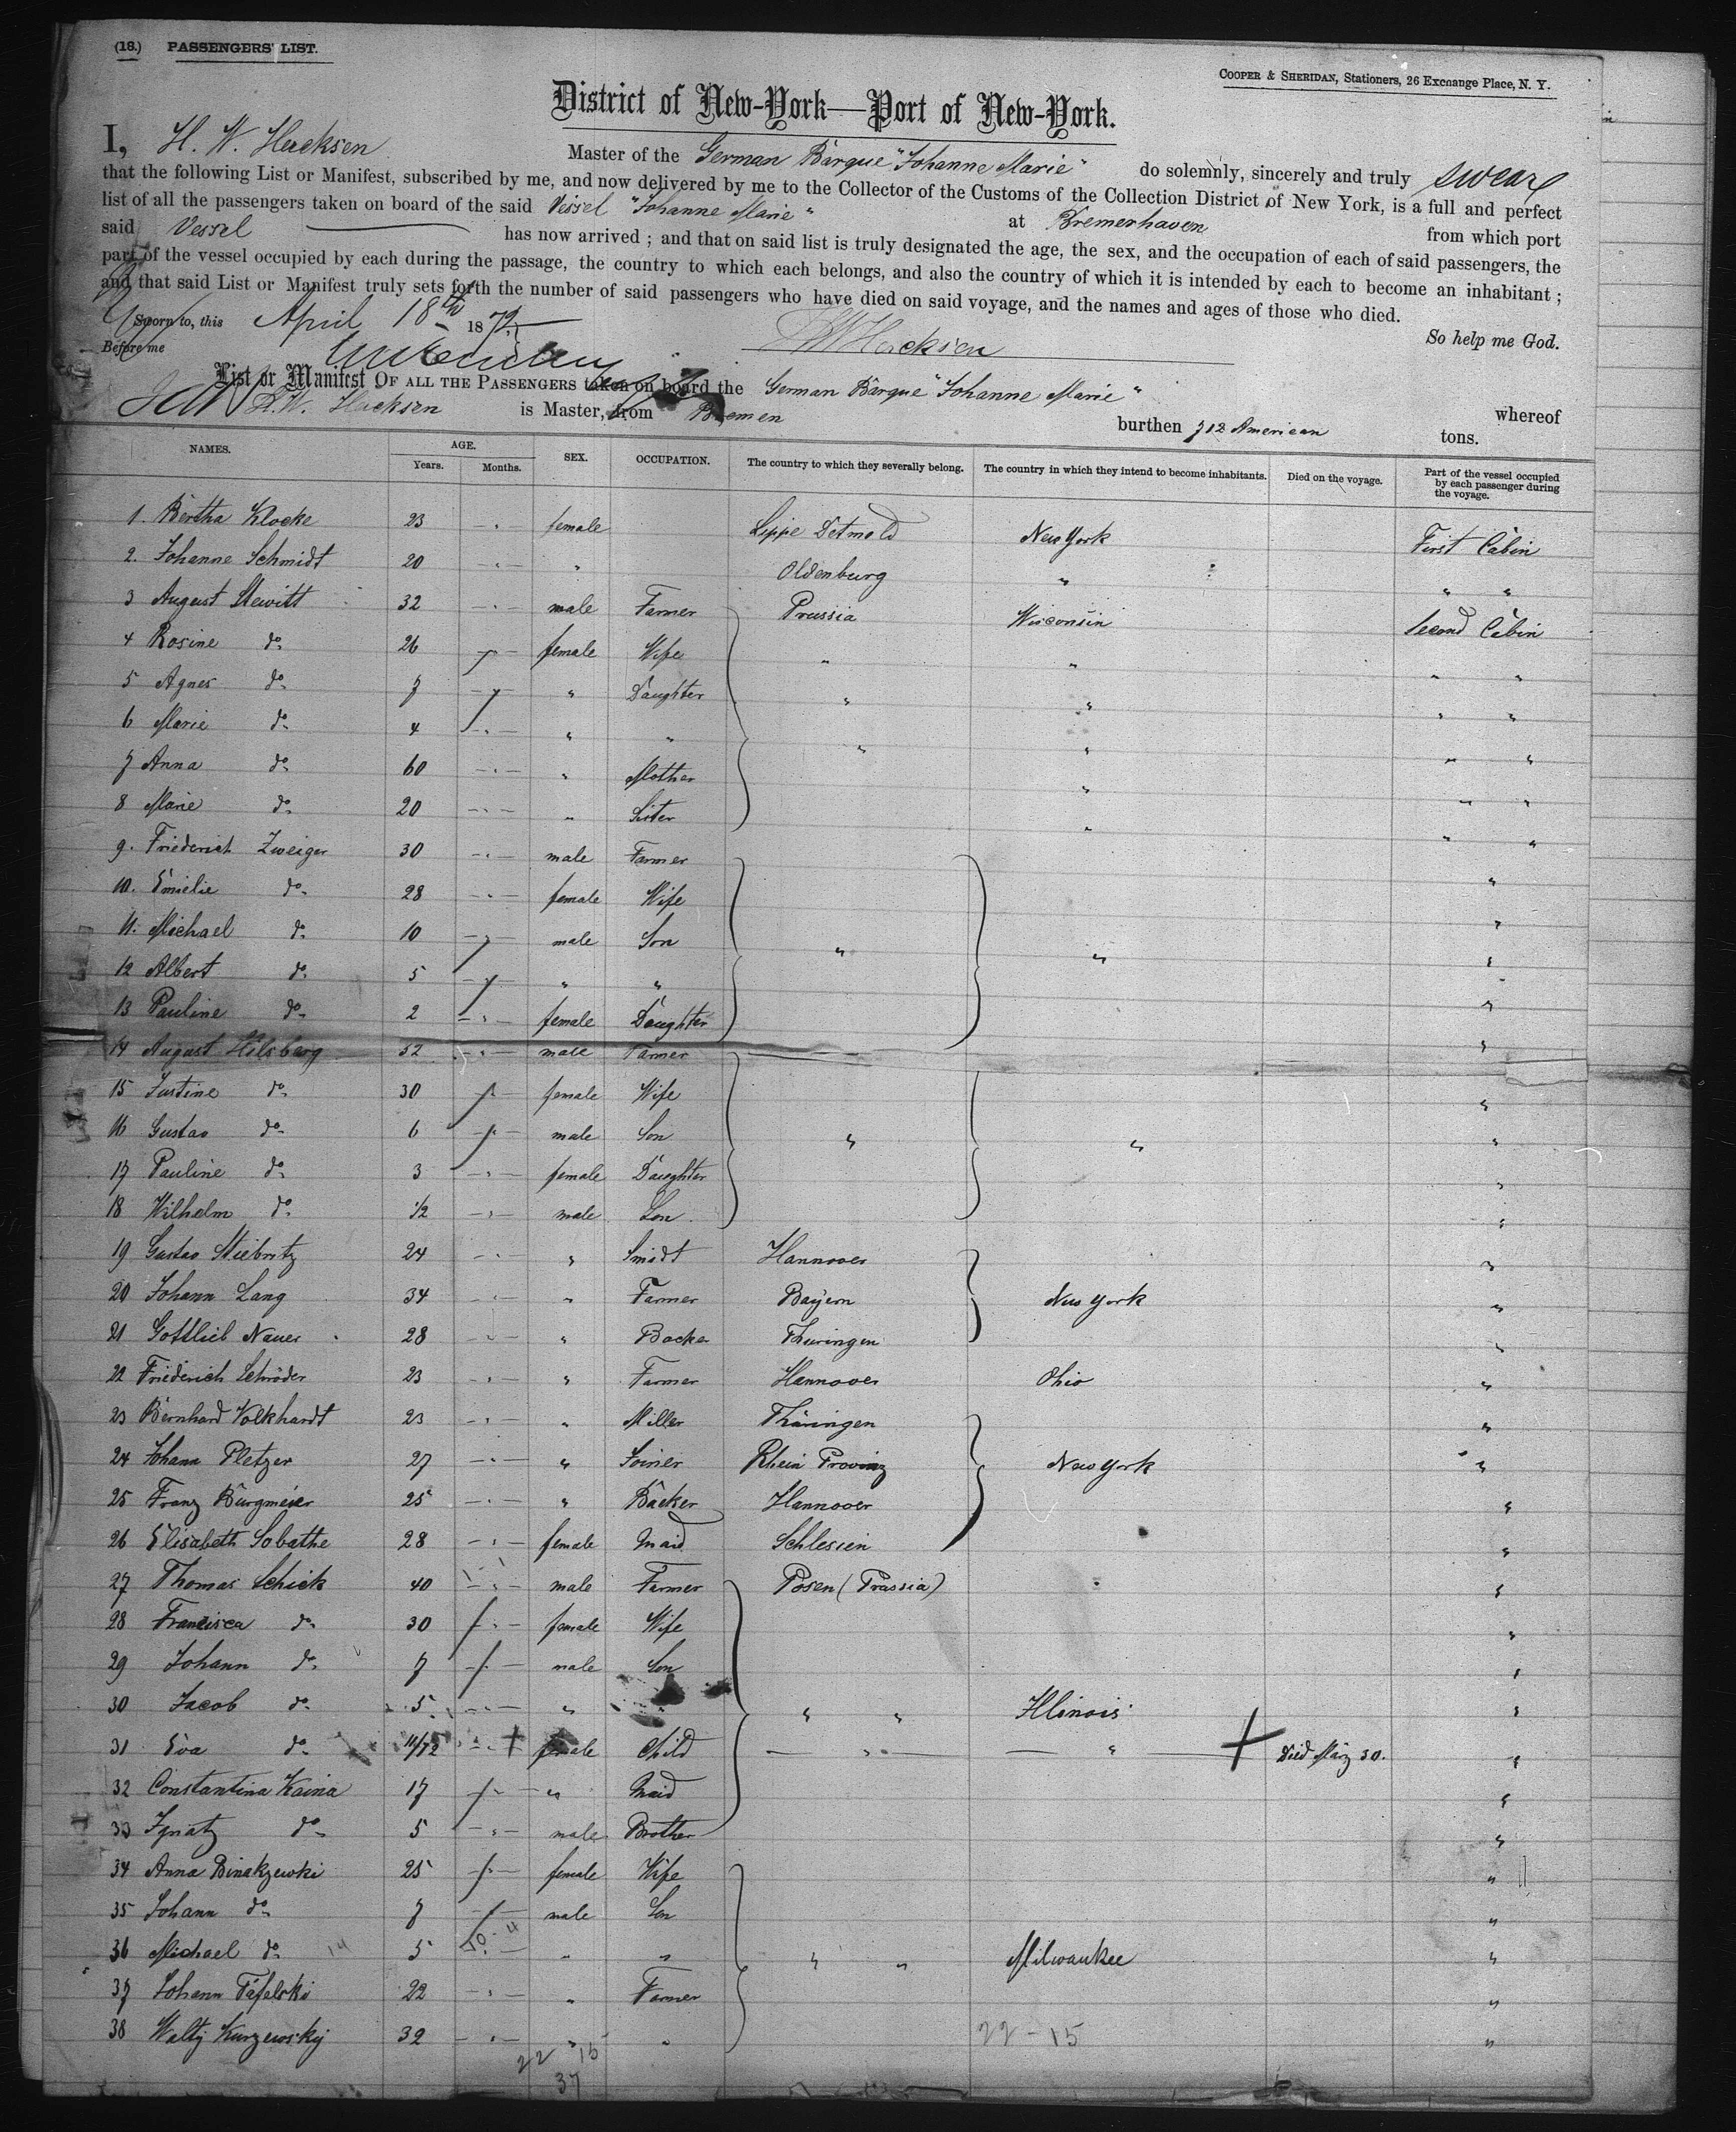 (18.) PASSENGERS' LIST.
COOPER & SHERIDAN, Stationers, 26 Exchange Place, N. Y.
District of New-York—Port of New-York.
I, H. W. Hacksen Master of the German Barque "Johanne Marie" do solemnly, sincerely and truly swear
that the following List or Manifest, subscribed by me, and now delivered by me to the Collector of the Customs of the Collection District of New York, is a full and perfect
list of all the passengers taken on board of the said Vessel "Johanne Marie" at Bremerhaven from which port
said Vessel has now arrived; and that on said list is truly designated the age, the sex, and the occupation of each of said passengers, the
part of the vessel occupied by each during the passage, the country to which each belongs, and also the country of which it is intended by each to become an inhabitant;
and that said List or Manifest truly sets forth the number of said passengers who have died on said voyage, and the names and ages of those who died.
Sworn to, this April 18th 187 So help me God.
Before me HWHacksen
List or Manifest OF ALL THE PASSENGERS taken on board the German Barque "Johanne Marie" whereof
H. W. Hacksen is Master, from Bremen burthen 712 American tons.
NAMES. AGE. SEX. OCCUPATION. The country to which they severally belong. The country in which they intend to become inhabitants. Died on the voyage. Part of the vessel occupied by each passenger during the voyage.
Years. Months.
1. Bertha Klocke 23 - female Lippe Detmold New York First Cabin
2. Johanne Schmidt 20 - " Oldenburg " " "
3 August Stewitt 32 - male Farmer Prussia Wisconsin Second Cabin
4 Rosine do 26 - female Wife " " " "
5 Agnes do 7 - " Daughter " " " "
6 Marie do 4 - " " " " " "
7 Anna do 60 - " Mother " " "
8 Marie do 20 - " Sister " " "
9. Friederich Zweiger 30 - male Farmer "
10. Emielie do 28 - female Wife "
11. Michael do 10 - male Son " " "
12 Albert do 5 - " " "
13 Pauline do 2 - female Daughter "
14 August Hilsberg 32 - male Farmer "
15 Justine do 30 - female Wife "
16 Gustav do 6 - male Son " " "
17 Pauline do 3 - female Daughter "
18 Wilhelm do 1/2 - male Son "
19 Gustav Stiebritz 24 - " Smidt Hannover "
20 Johann Lang 34 - " Farmer Bayern New York "
21 Gottlieb Nauer 28 - " Backer Thuringen "
22 Friederich Schröder 23 - " Farmer Hannover Ohio "
23 Bernhard Volkhardt 23 - " Miller Thüringen "
24 Johann Pletzer 27 - " Joiner Rhein Provinz New York "
25 Franz Burgmeier 25 - " Bäcker Hannover "
26 Elisabeth Sobathe 28 - female Maid Schlesien "
27 Thomas Schick 40 - male Farmer Posen (Prussia) "
28 Francisca do 30 - female Wife "
29 Johann do 7 - male Son "
30 Jacob do 5 - " " " " Illinois "
31 Eva do 11/12 - female Child " " Died März 30. "
32 Constantina Kaina 17 - " Maid "
33 Ignatz do 5 - male Brother "
34 Anna Binakzewski 25 - female Wife "
35 Johann do 7 - male Son "
36 Michael do 5 - " " " " Milwaukee "
37 Johann Tafelski 22 - " Farmer "
38 Walty Kurzewsky 32 - " " "
22 15 22 - 15
37